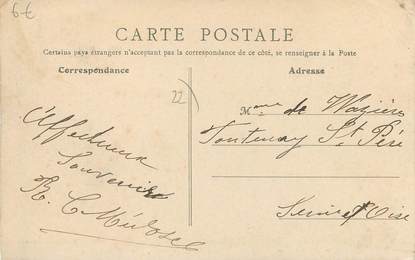 6€
CARTE POSTALE
Certains pays étrangers n'acceptant pas la correspondance de ce côté, se renseigner à la Poste
Correspondance
Adresse
22
Affectueux
Souvenirs
Mme de Waziers
Fontenay St Père
Seine et Oise